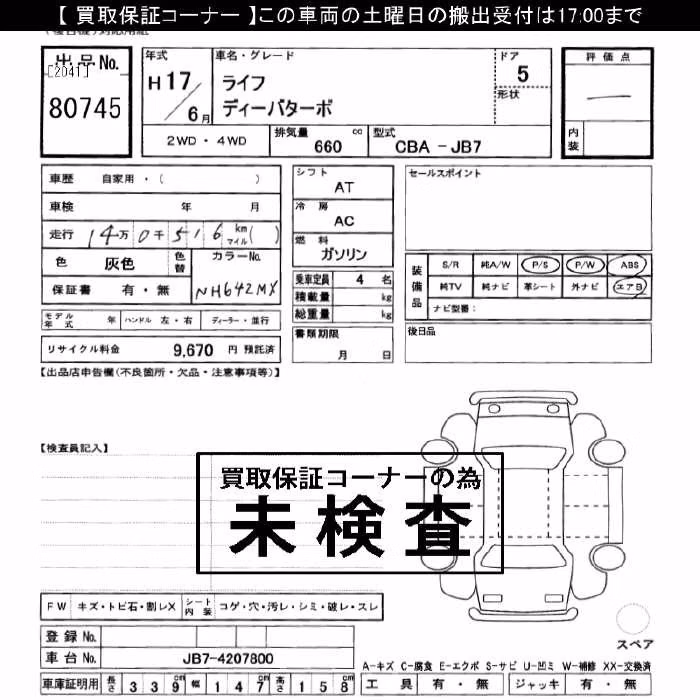 【 買取保証コーナー 】この車両の土曜日の搬出受付は17:00まで
出品No.
[2041]
80745
年式
H17/6月
車名・グレード
ライフ
ディーバターボ
ドア
5
形状
評価点
―
内装
2WD・4WD
排気量 660 cc
型式 CBA－JB7
車歴 自家用・( )
車検 年 月
走行 14万0千516km マイル( )
色 灰色
色替
カラーNo.
NH642MX
保証書 有・無
モデル年式 年 ハンドル 左・右 ディーラー・並行
リサイクル料金 9,670 円 預託済
シフト
AT
冷房
AC
燃料
ガソリン
乗車定員 4 名
積載量 kg
総重量 kg
書類期限
月 日
セールスポイント
装備品
S/R 純A/W P/S P/W ABS
純TV 純ナビ 革シート 外ナビ エアB
ナビ型番：
後日品
【出品店申告欄(不良箇所・欠品・注意事項等)】
【検査員記入】
買取保証コーナーの為
未検査
FW キズ・トビ石・割レX シート内装 コゲ・穴・汚レ・シミ・破レ・スレ
登録No.
車台No. JB7-4207800
車庫証明用 長さ 339cm 幅 147cm 高さ 158cm
スペア
A-キズ C-腐食 E-エクボ S-サビ U-凹ミ W-補修 XX-交換済
工具 有・無 ジャッキ 有・無